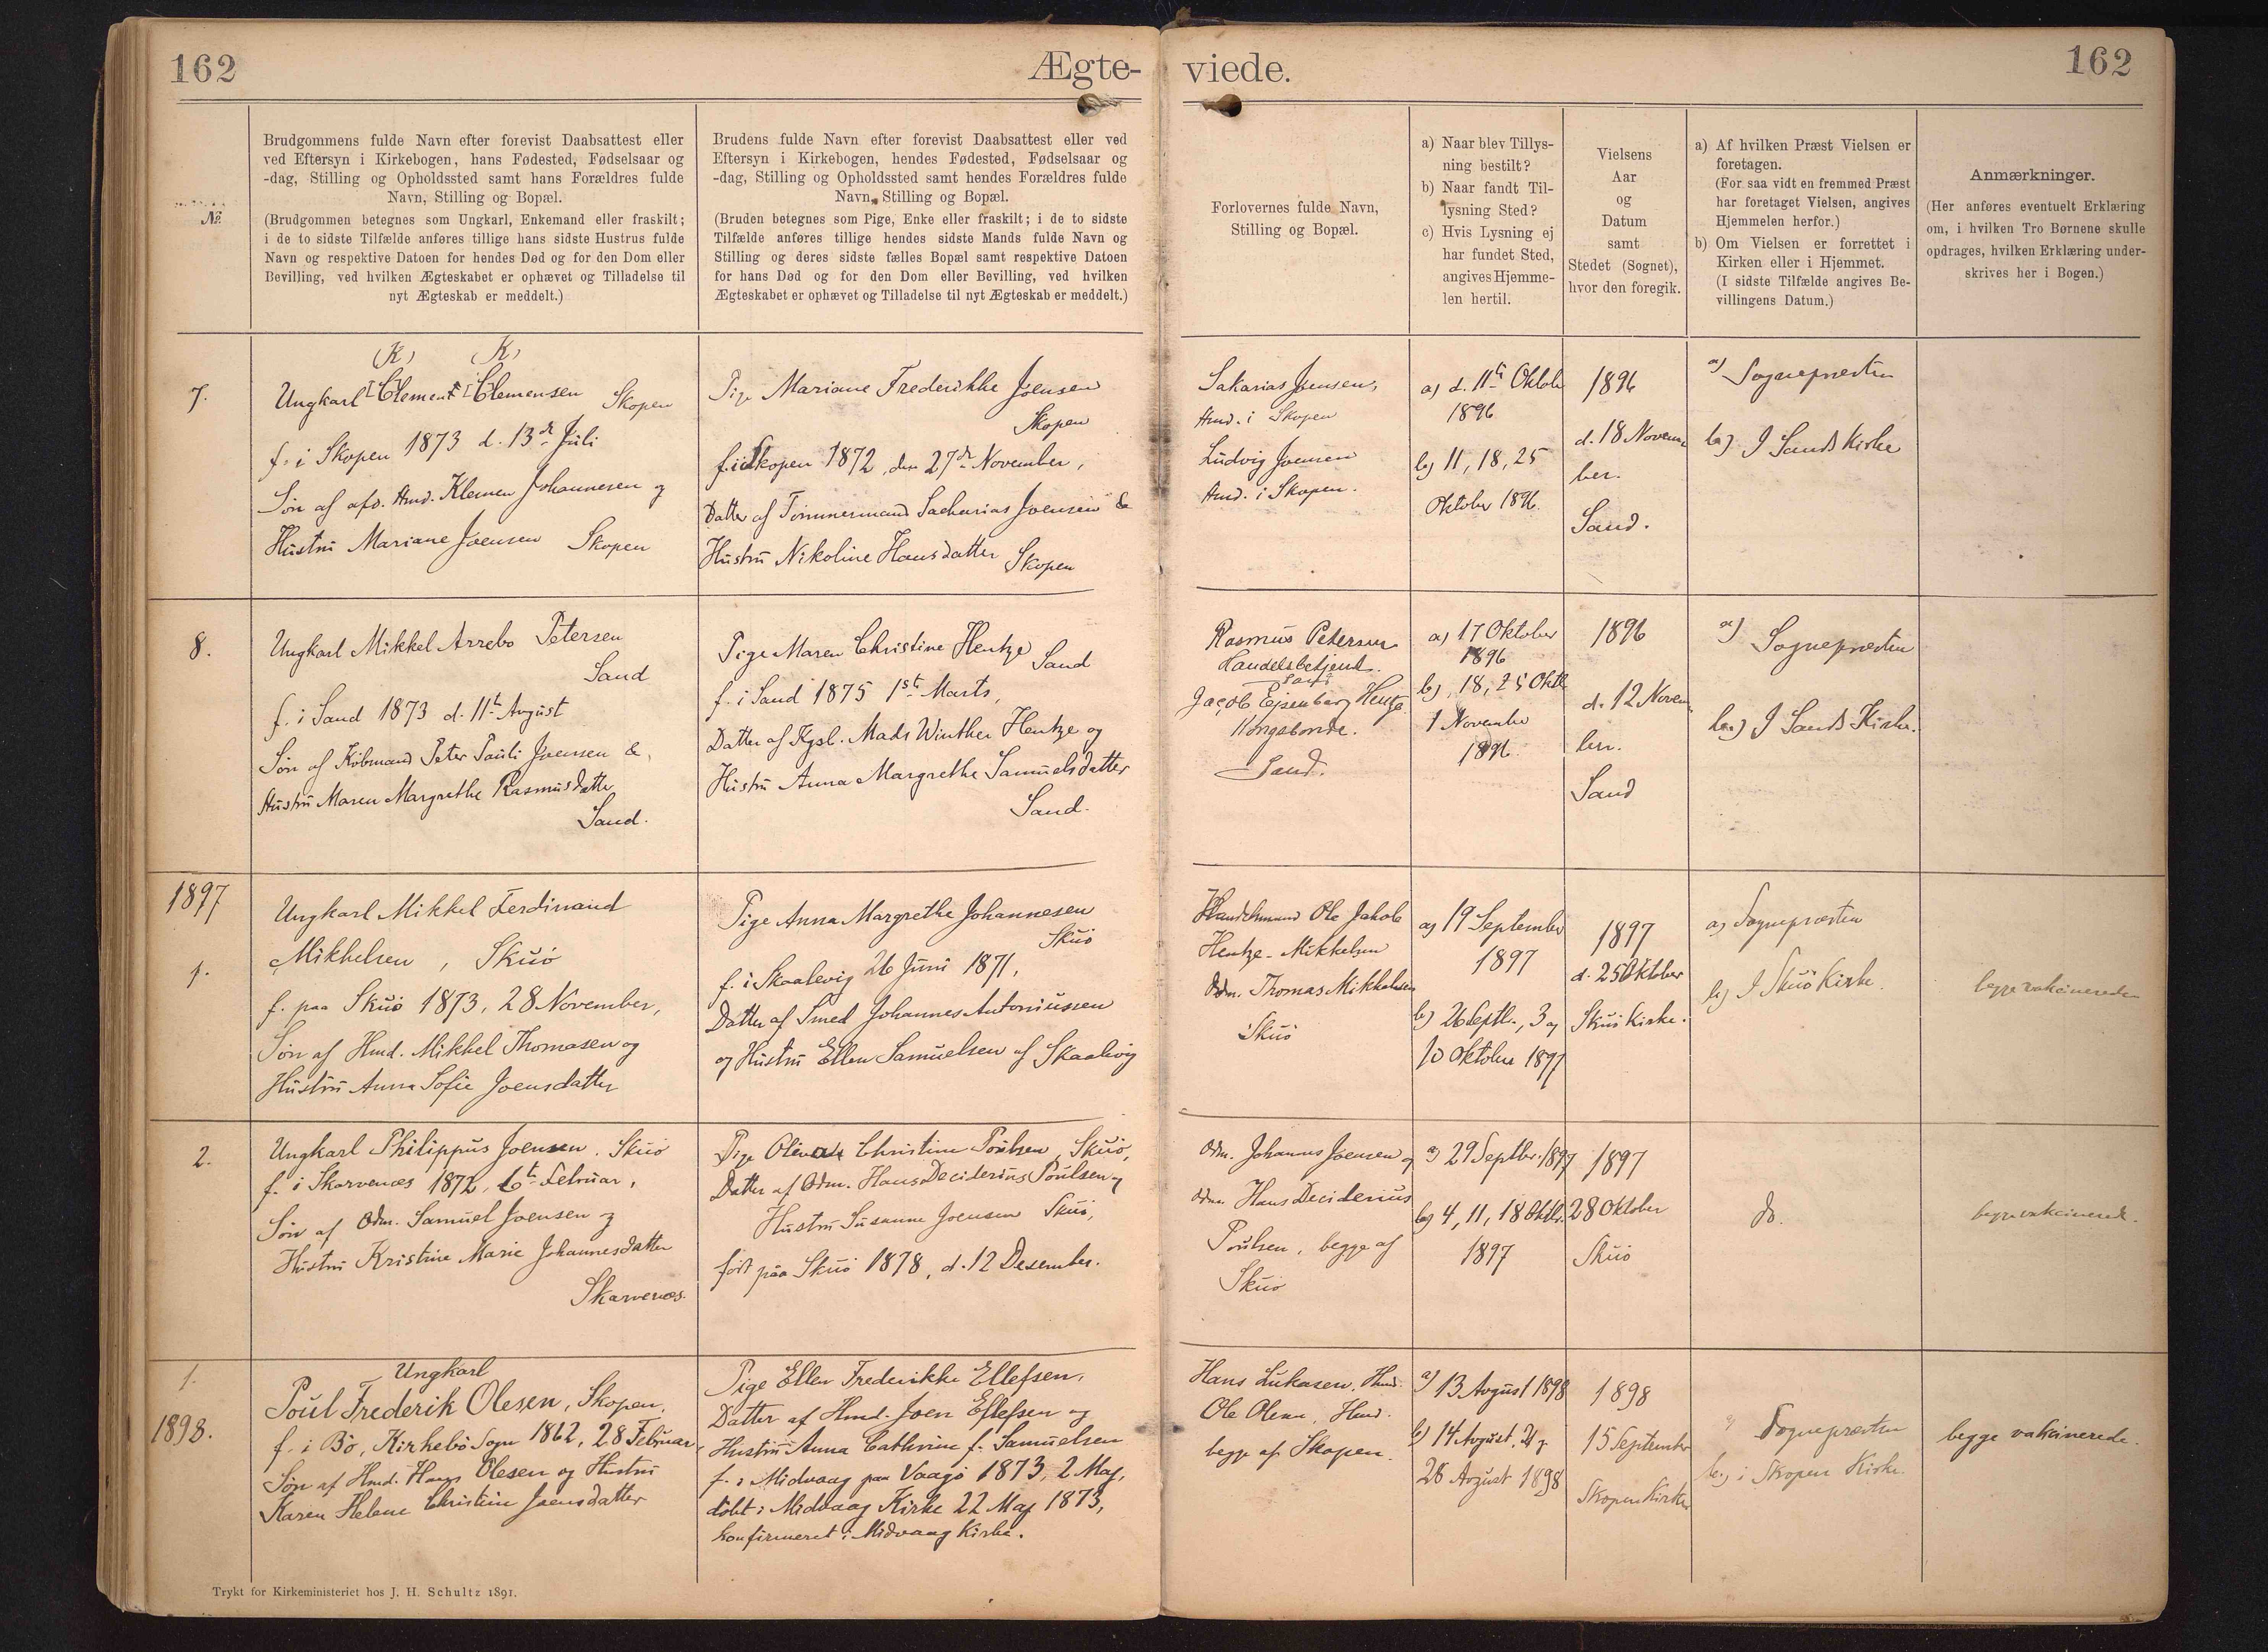 162
Ægte-
viede.
162
No.
Brudgommens fulde Navn efter forevist Daabsattest eller
ved Eftersyn i Kirkebogen, hans Fødested, Fødselsaar og
-dag, Stilling og Opholdssted samt hans Forældres fulde
Navn, Stilling og Bopæl.
(Brudgommen betegnes som Ungkarl, Enkemand eller fraskilt;
i de to sidste Tilfælde anføres tillige hans sidste Hustrus fulde
Navn og respektive Datoen for hendes Død og for den Dom eller
Bevilling, ved hvilken Ægteskabet er ophævet og Tilladelse til
nyt Ægteskab er meddelt.)
Brudens fulde Navn efter forevist Daabsattest eller ved
Eftersyn i Kirkebogen, hendes Fødested, Fødselsaar og
-dag, Stilling og Opholdssted samt hendes Forældres fulde
Navn, Stilling og Bopæl.
(Bruden betegnes som Pige, Enke eller fraskilt; i de to sidste
Tilfælde anføres tillige hendes sidste Mands fulde Navn og
Stilling og deres sidste fælles Bopæl samt respektive Datoen
for hans Død og for den Dom eller Bevilling, ved hvilken
Ægteskabet er ophævet og Tilladelse til nyt Ægteskab er meddelt.)
Forlovernes fulde Navn,
Stilling og Bopæl.
a) Naar blev Tillys-
ning bestilt?
b) Naar fandt Til-
lysning Sted?
c) Hvis Lysning ej
har fundet Sted,
angives Hjemme-
len hertil.
Vielsens
Aar
og
Datum
samt
Stedet (Sognet),
hvor den foregik.
a) Af hvilken Præst Vielsen er
foretagen.
(For saa vidt en fremmed Præst
har foretaget Vielsen, angives
Hjemmelen herfor.)
b) Om Vielsen er forrettet i
Kirken eller i Hjemmet.
(I sidste Tilfælde angives Be-
villingens Datum.)
Anmærkninger.
(Her anføres eventuelt Erklæring
om, i hvilken Tro Børnene skulle
opdrages, hvilken Erklæring under-
skrives her i Bogen.)
7.
(K) (K)
Ungkarl Clement Clemensen
Skopen
f. i Skopen 1873 d. 13de Juli
Søn af afd. Hmd. Klemen Johannesen og
Hustru Mariane Joensen Skopen
Pige Mariane Frederikke Joensen
Skopen
f. i Skopen 1872, den 27de November,
Datter af Tømmermand Sacharias Joensen &
Hustru Nikoline Hansdatter Skopen
Sakarias Joensen,
Hmd. i Skopen
Ludvig Joensen
Hmd. i Skopen.
a) d. 11te Oktob
1896
b) 11, 18, 25
Oktober 1896.
1896
d. 18 Novem
ber.
Sand.
a) Sognepræsten
b) I Sands Kirke
8.
Ungkarl Mikkel Arrebo Petersen
Sand
f. i Sand 1873 d. 11te August
Søn af Købmand Peter Pauli Joensen &
Hustru Maren Margrethe Rasmusdatter
Sand.
Pige Maren Christine Hentze
Sand
f. i Sand 1875 1st Marts,
Datter af Kgsb. Mads Winther Hentze og
Hustru Anna Margrethe Samuelsdatter
Sand.
Rasmus Petersen
Handelsbetjent.
Sand
Jacob Ejsenberg Hentze
Kongsbonde.
Sand.
a) 17 Oktober
1896
b) 18, 25 Oktb
1 November
1896.
1896
d. 12 Novem
ber.
Sand
a) Sognepræsten
b) I Sands Kirke.
1897
1.
Ungkarl Mikkel Ferdinand
Mikkelsen, Skuø
f. paa Skuø 1873, 28 November,
Søn af Hmd. Mikkel Thomasen og
Hustru Anna Sofie Joensdatter
Pige Anna Margrethe Johannesen
Skuø
f. i Skaalevig 26 Juni 1871,
Datter af Smed Johannes Antoniussen
og Hustru Ellen Samuelsen af Skaalevig
Handelsmand Ole Jakob
Hentze-Mikkelsen
Odm. Thomas Mikkelsen
Skuø
a) 19 September
1897
b) 26 Septb., 3 og
10 Oktober 1897
1897
d. 25 Oktober
Skuø Kirke.
a) Sognepræsten
b) I Skuø Kirke.
begge vakcinerede
2.
Ungkarl Philippus Joensen, Skuø
f. i Skarvenæs 1872, 6te Februar,
Søn af Odm. Samuel Joensen og
Hustru Kristine Marie Johannesdatter
Skarvenæs.
Pige Christine Poulsen, Skuø,
Datter af Odm. Hans Deciderius Poulsen og
Hustru Susanne Joensen Skuø,
født paa Skuø 1878, d. 12 Desember.
Odm. Johannes Joensen og
Odm. Hans Deciderius
Poulsen, begge af
Skuø
a) 29 Septbr. 1897
b) 4, 11, 18 Oktb.
1897
1897
28 Oktober
Skuø
do.
begge vakcinered.
1.
1898.
Ungkarl
Poul Frederik Olesen, Skopen,
f. i Bø, Kirkebø Sogn 1862, 28 Februar,
Søn af Hmd. Hans Olesen og Hustru
Karen Helene Christine Joensdatter
Pige Ellen Frederikke Ellefsen,
Datter af Hmd. Joen Ellefsen og
Hustru Anna Cathrine f. Samuelsen
f. i Midvaag paa Vaagø 1873, 2 Maj,
døbt i Midvaag Kirke 22 Maj 1873,
konfirmeret i Midvaag Kirke.
Hans Lukasen, Hmd.
Ole Olesen, Hmd.
begge af Skopen.
a) 13 Avgust 1898
b) 14 Avgust, 21 og
28 Avgust 1898
1898
15 September
Skopen Kirke
a) Sognepræsten
b) i Skopen Kirke.
begge vakcinerede.
Trykt for Kirkeministeriet hos J. H. Schultz 1891.